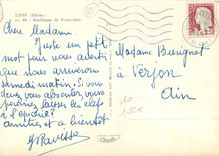 LYON (Rhône)
Basilique de Fourvière
Chère Madame.
Juste un petit
mot pour vous avertir
que nous arriverons
samedi matin. Si vous
devez vous absenter, vous
pourriez laisser les clefs
à l'épicerie?
amitiés et à bientôt
Madame
à Verjon
Ain